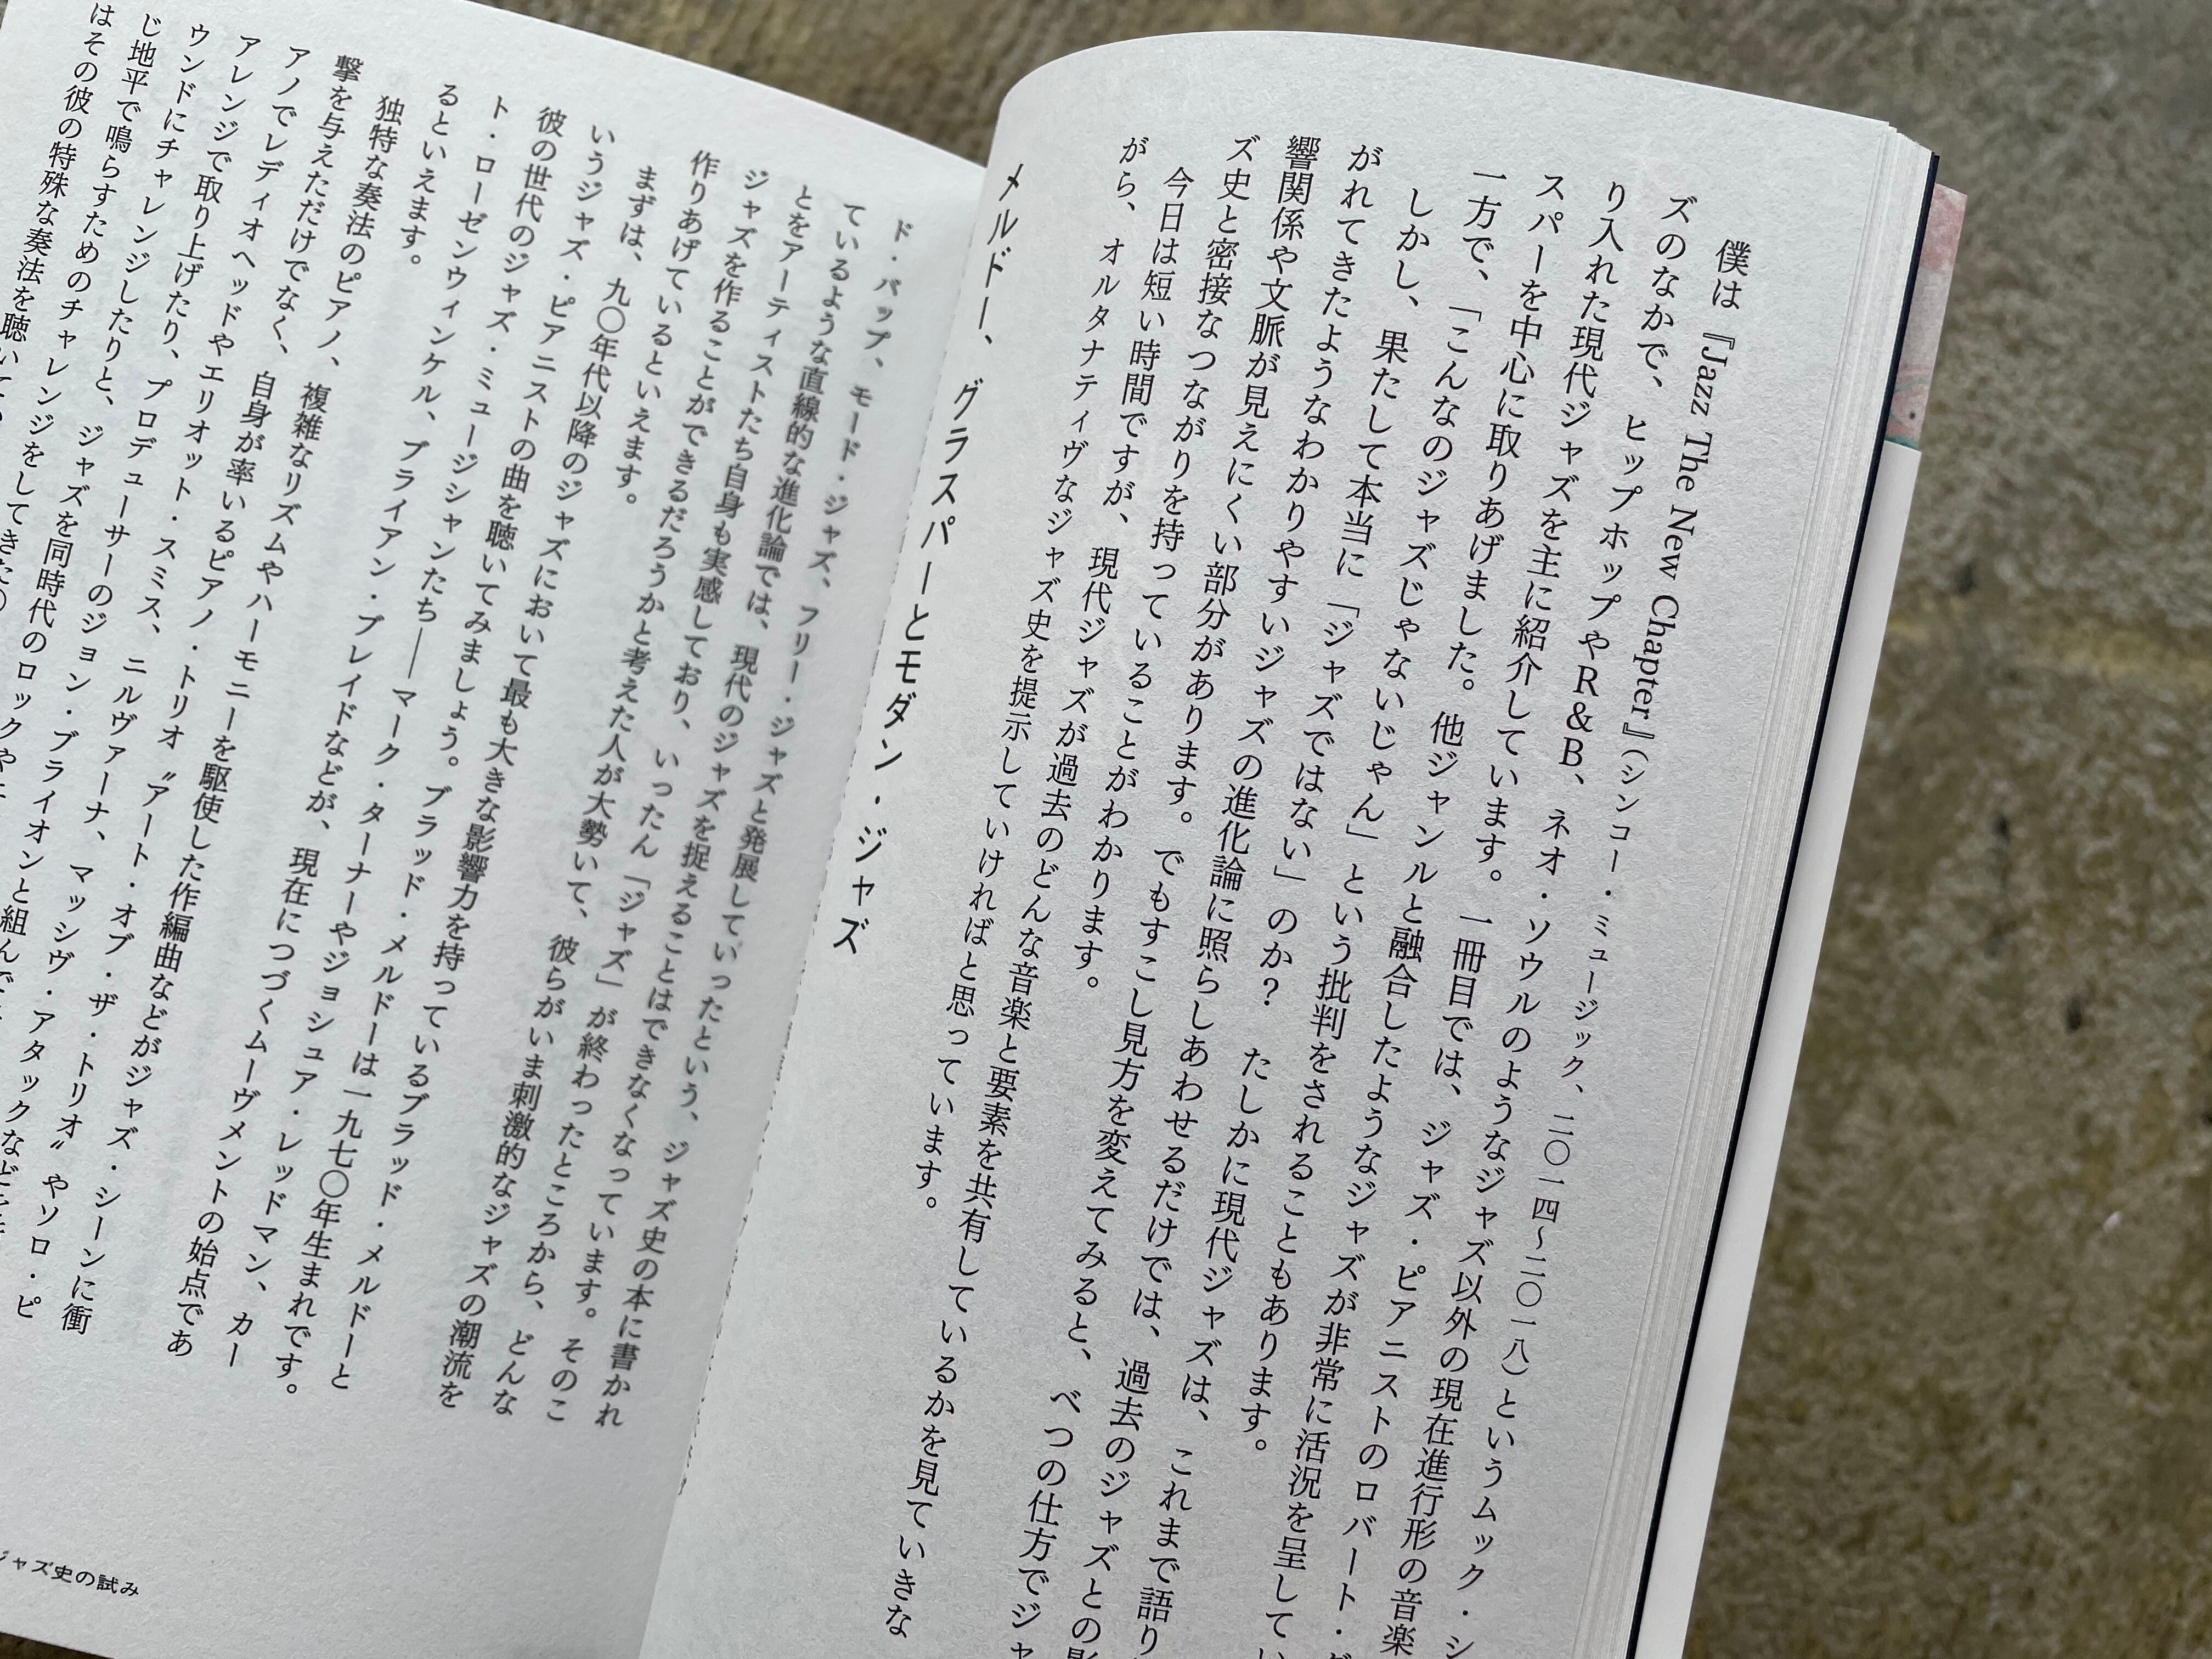 僕は『Jazz The New Chapter』（シンコー・ミュージック、二〇一四〜二〇一八）というムック・シ
ズのなかで、ヒップホップやR&B、ネオ・ソウルのようなジャズ以外の現在進行形の音楽
り入れた現代ジャズを主に紹介しています。一冊目では、ジャズ・ピアニストのロバート・グ
スパーを中心に取りあげました。他ジャンルと融合したようなジャズが非常に活況を呈してい
一方で、「こんなのジャズじゃないじゃん」という批判をされることもあります。
しかし、果たして本当に「ジャズではない」のか？　たしかに現代ジャズは、これまで語り
がれてきたようなわかりやすいジャズの進化論に照らしあわせるだけでは、過去のジャズとの影
響関係や文脈が見えにくい部分があります。でもすこし見方を変えてみると、べつの仕方でジャ
ズ史と密接なつながりを持っていることがわかります。
今日は短い時間ですが、現代ジャズが過去のどんな音楽と要素を共有しているかを見ていきな
がら、オルタナティヴなジャズ史を提示していければと思っています。
メルドー、グラスパーとモダン・ジャズ
ド・バップ、モード・ジャズ、フリー・ジャズと発展していったという、ジャズ史の本に書かれ
ているような直線的な進化論では、現代のジャズを捉えることはできなくなっています。そのこ
とをアーティストたち自身も実感しており、いったん「ジャズ」が終わったところから、どんな
ジャズを作ることができるだろうかと考えた人が大勢いて、彼らがいま刺激的なジャズの潮流を
作りあげているといえます。
まずは、九〇年代以降のジャズにおいて最も大きな影響力を持っているブラッド・メルドーと
いうジャズ・ピアニストの曲を聴いてみましょう。ブラッド・メルドーは一九七〇年生まれです。
彼の世代のジャズ・ミュージシャンたち――マーク・ターナーやジョシュア・レッドマン、カー
ト・ローゼンウィンケル、ブライアン・ブレイドなどが、現在につづくムーヴメントの始点であ
るといえます。
独特な奏法のピアノ、複雑なリズムやハーモニーを駆使した作編曲などがジャズ・シーンに衝
撃を与えただけでなく、自身が率いるピアノ・トリオ〝アート・オブ・ザ・トリオ〟やソロ・ピ
アノでレディオヘッドやエリオット・スミス、ニルヴァーナ、マッシヴ・アタックなどを
アレンジで取り上げたり、プロデューサーのジョン・ブライオンと組んで
ウンドにチャレンジしたりと、ジャズを同時代のロックや
じ地平で鳴らすためのチャレンジをしてきた
はその彼の特殊な奏法を聴いて
ジャズ史の試み